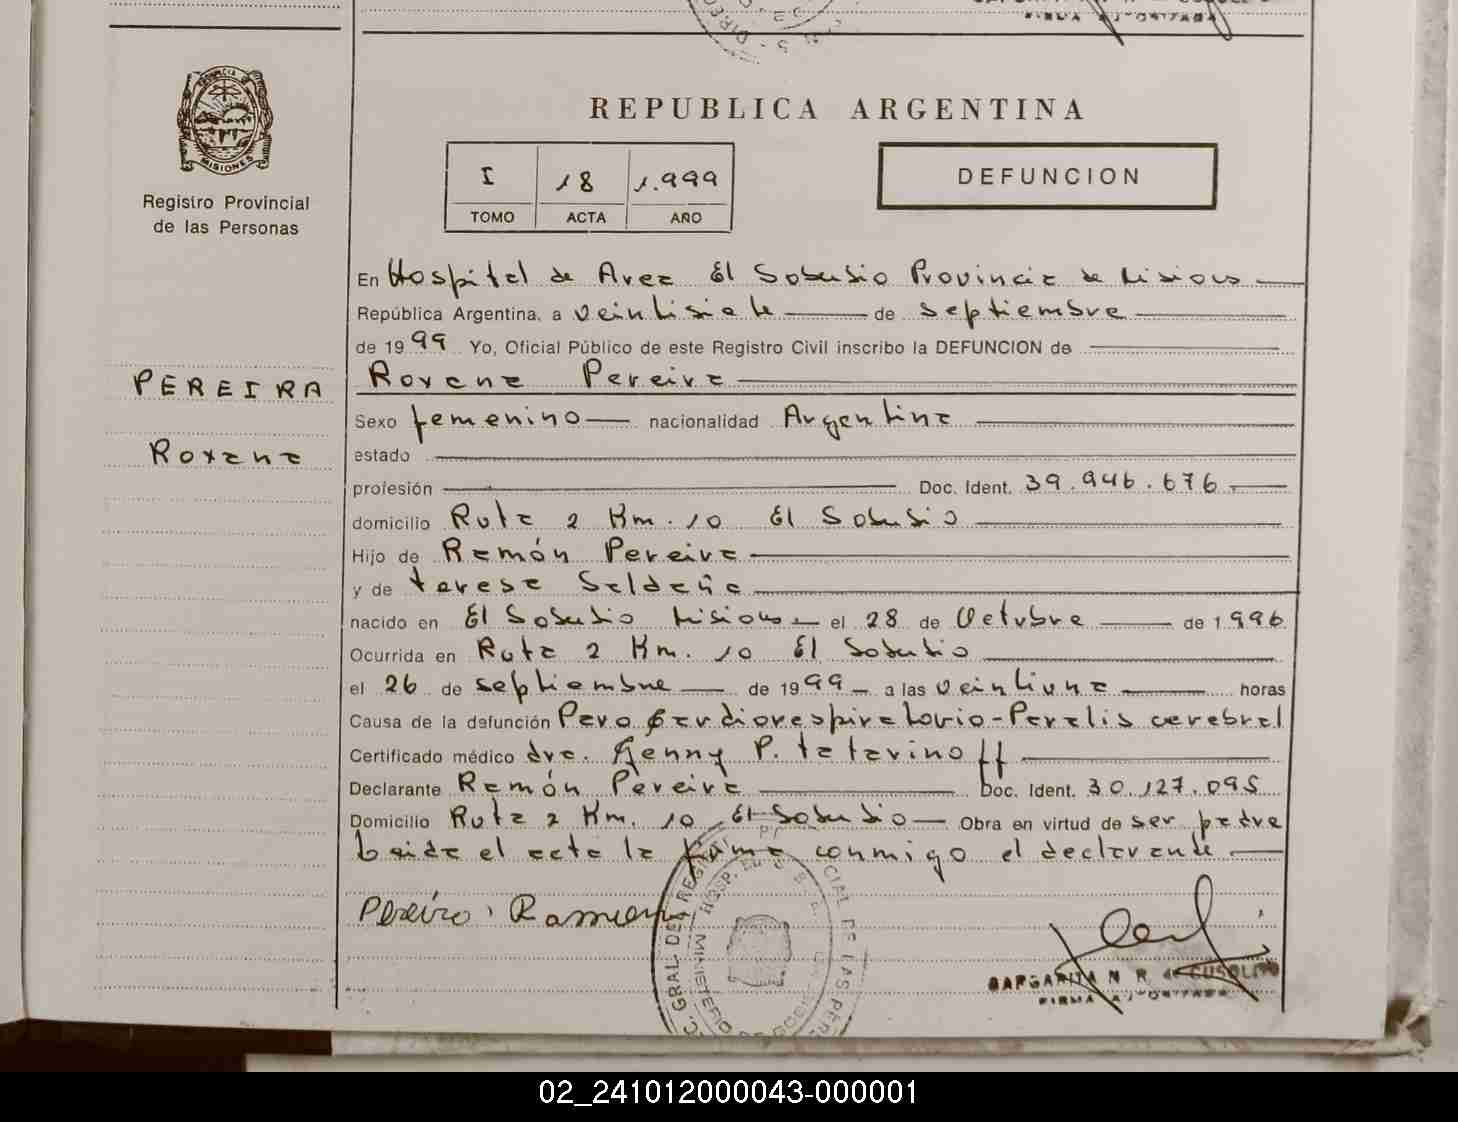 REPUBLICA ARGENTINA
MISIONES
Registro Provincial
de las Personas
I 18 1.999
TOMO ACTA AÑO
DEFUNCION
En Hospital de Area El Soberbio Provincia de Misiones
República Argentina, a veintisiete de septiembre
de 1999 Yo, Oficial Público de este Registro Civil inscribo la DEFUNCION de
PEREIRA
Roxana
Roxana Pereira
Sexo femenino nacionalidad Argentina
estado
profesión Doc. Ident. 39.946.676
domicilio Ruta 2 Km. 10 El Soberbio
Hijo de Ramón Pereira
y de teresa Seldaña
nacido en El Soberbio Misiones el 28 de Octubre de 1996
Ocurrida en Ruta 2 Km. 10 El Soberbio
el 26 de septiembre de 1999 a las veintiuna horas
Causa de la defunción Paro Cardiorespiratorio-Paralis cerebral
Certificado médico dra. Genny P. tatarinoff
Declarante Ramón Pereira Doc. Ident. 30.127.095
Domicilio Ruta 2 Km. 10 El Soberbio Obra en virtud de ser padre
Leida el acta la firma conmigo el declarante
Pereiro Ramon
MARGARITA N R de CUSOLITO
FIRMA AUTORIZADA
02_241012000043-000001